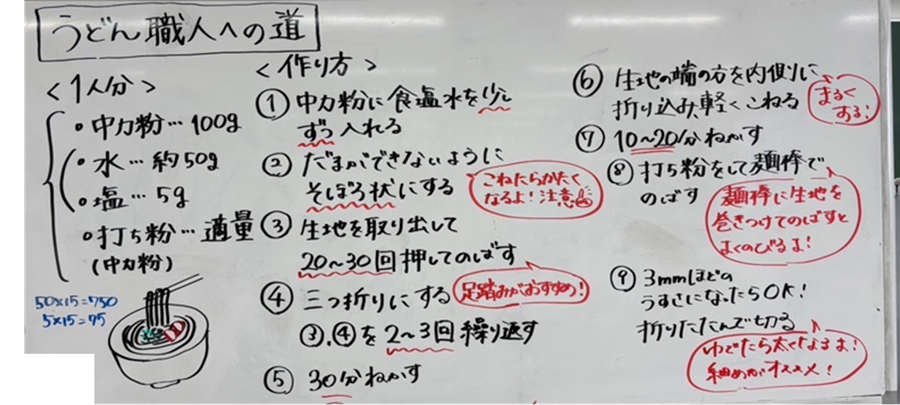 うどん職人への道
<1人分>
・中力粉…100g
・水…約50g
・塩…5g
・打ち粉…適量
(中力粉)
50×15=750
5×15=75
<作り方>
①中力粉に食塩水を少し
ずつ入れる
②だまができないように
そぼろ状にする
こねたらかたく
なるよ!注意
③生地を取り出して
20~30回押してのばす
足踏みがおすすめ!
④三つ折りにする
③.④を2~3回繰り返す
⑤30分ねかす
⑥生地の端の方を内側に
折り込み軽くこねる
まるく
する!
⑦10~20分ねかす
⑧打ち粉をして麺棒で
のばす
麺棒に生地を
巻きつけてのばすと
よくのびるよ!
⑨3mmほどの
うすさになったらOK!
折りたたんで切る
ゆでたら太くなるよ!
細めがオススメ!